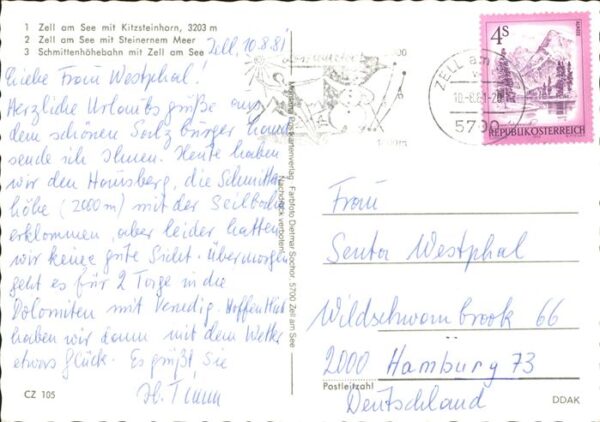 1 Zell am See mit Kitzsteinhorn, 3203 m
2 Zell am See mit Steinernem Meer
3 Schmittenhöhebahn mit Zell am See
Zell, 10.8.81
Liebe Frau Westphal!
Herzliche Urlaubsgrüße aus
dem schönen Salzburger Land
sende ich Ihnen. Heute haben
wir den Hausberg, die Schmitten
höhe (2000 m) mit der Seilbahn
erklommen, aber leider hatten
wir keine gute Sicht. Übermorgen
geht es für 2 Tage in die
Dolomiten mit Venedig. Hoffentlich
haben wir dann mit dem Wetter
etwas Glück. Es grüßt Sie
H. Timm
CZ 105
Postkartenverlag Farbfoto Dietmar Sochor, 5700 Zell am See
Nachdruck verboten
4S
REPUBLIK ÖSTERREICH
ZELL am
10.-8.81-20
5700
Frau
Senta Westphal
Wildschwanbrook 66
2000 Hamburg 73
Postleitzahl
Deutschland
DDAK